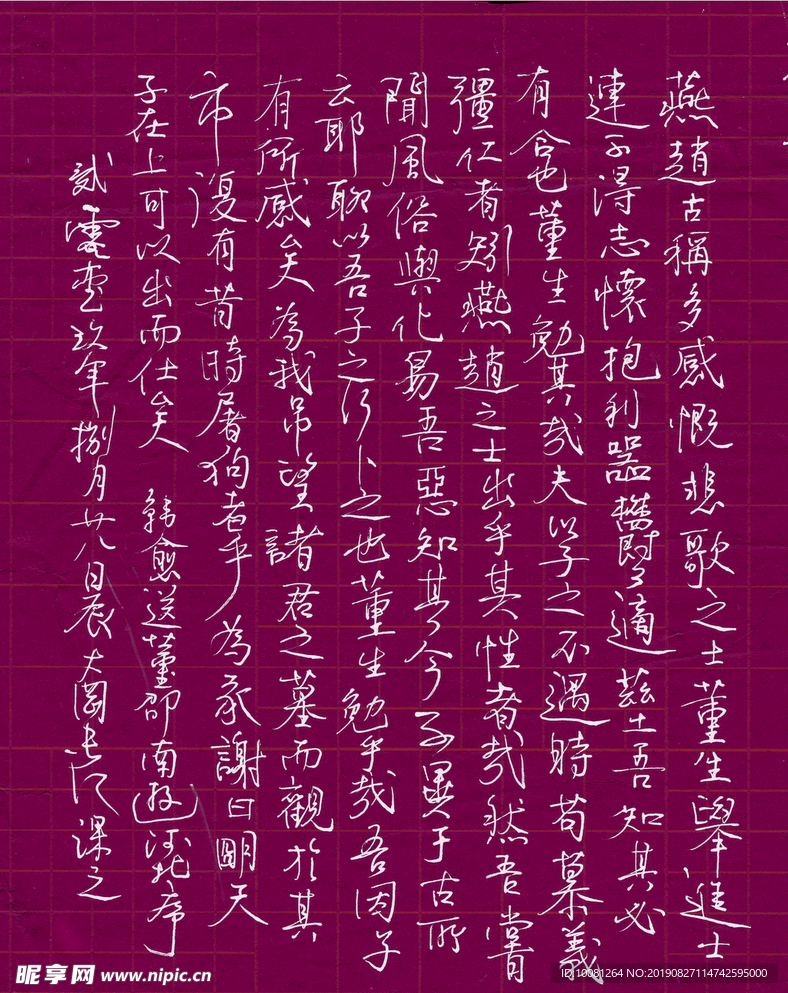 燕趙古稱多感慨悲歌之士董生舉進士
連不得志懷抱利器鬱鬱適茲土吾知其必
有合也董生勉其哉夫以子之不遇時苟慕義
彊仁者矧燕趙之士出乎其性者哉然吾嘗
聞風俗與化易吾惡知其今不異于古所
云耶聊以吾子之行卜之也董生勉乎哉吾因子
有所感矣為我弔望諸君之墓而觀於其
市復有昔時屠狗者乎為我謝曰明天
子在上可以出而仕矣 韓愈送董邵南遊河北序
貳零壹玖年捌月廿八日晨大園課之
昵享网 www.nipic.cn
ID:10081264 NO:20190827114742595000